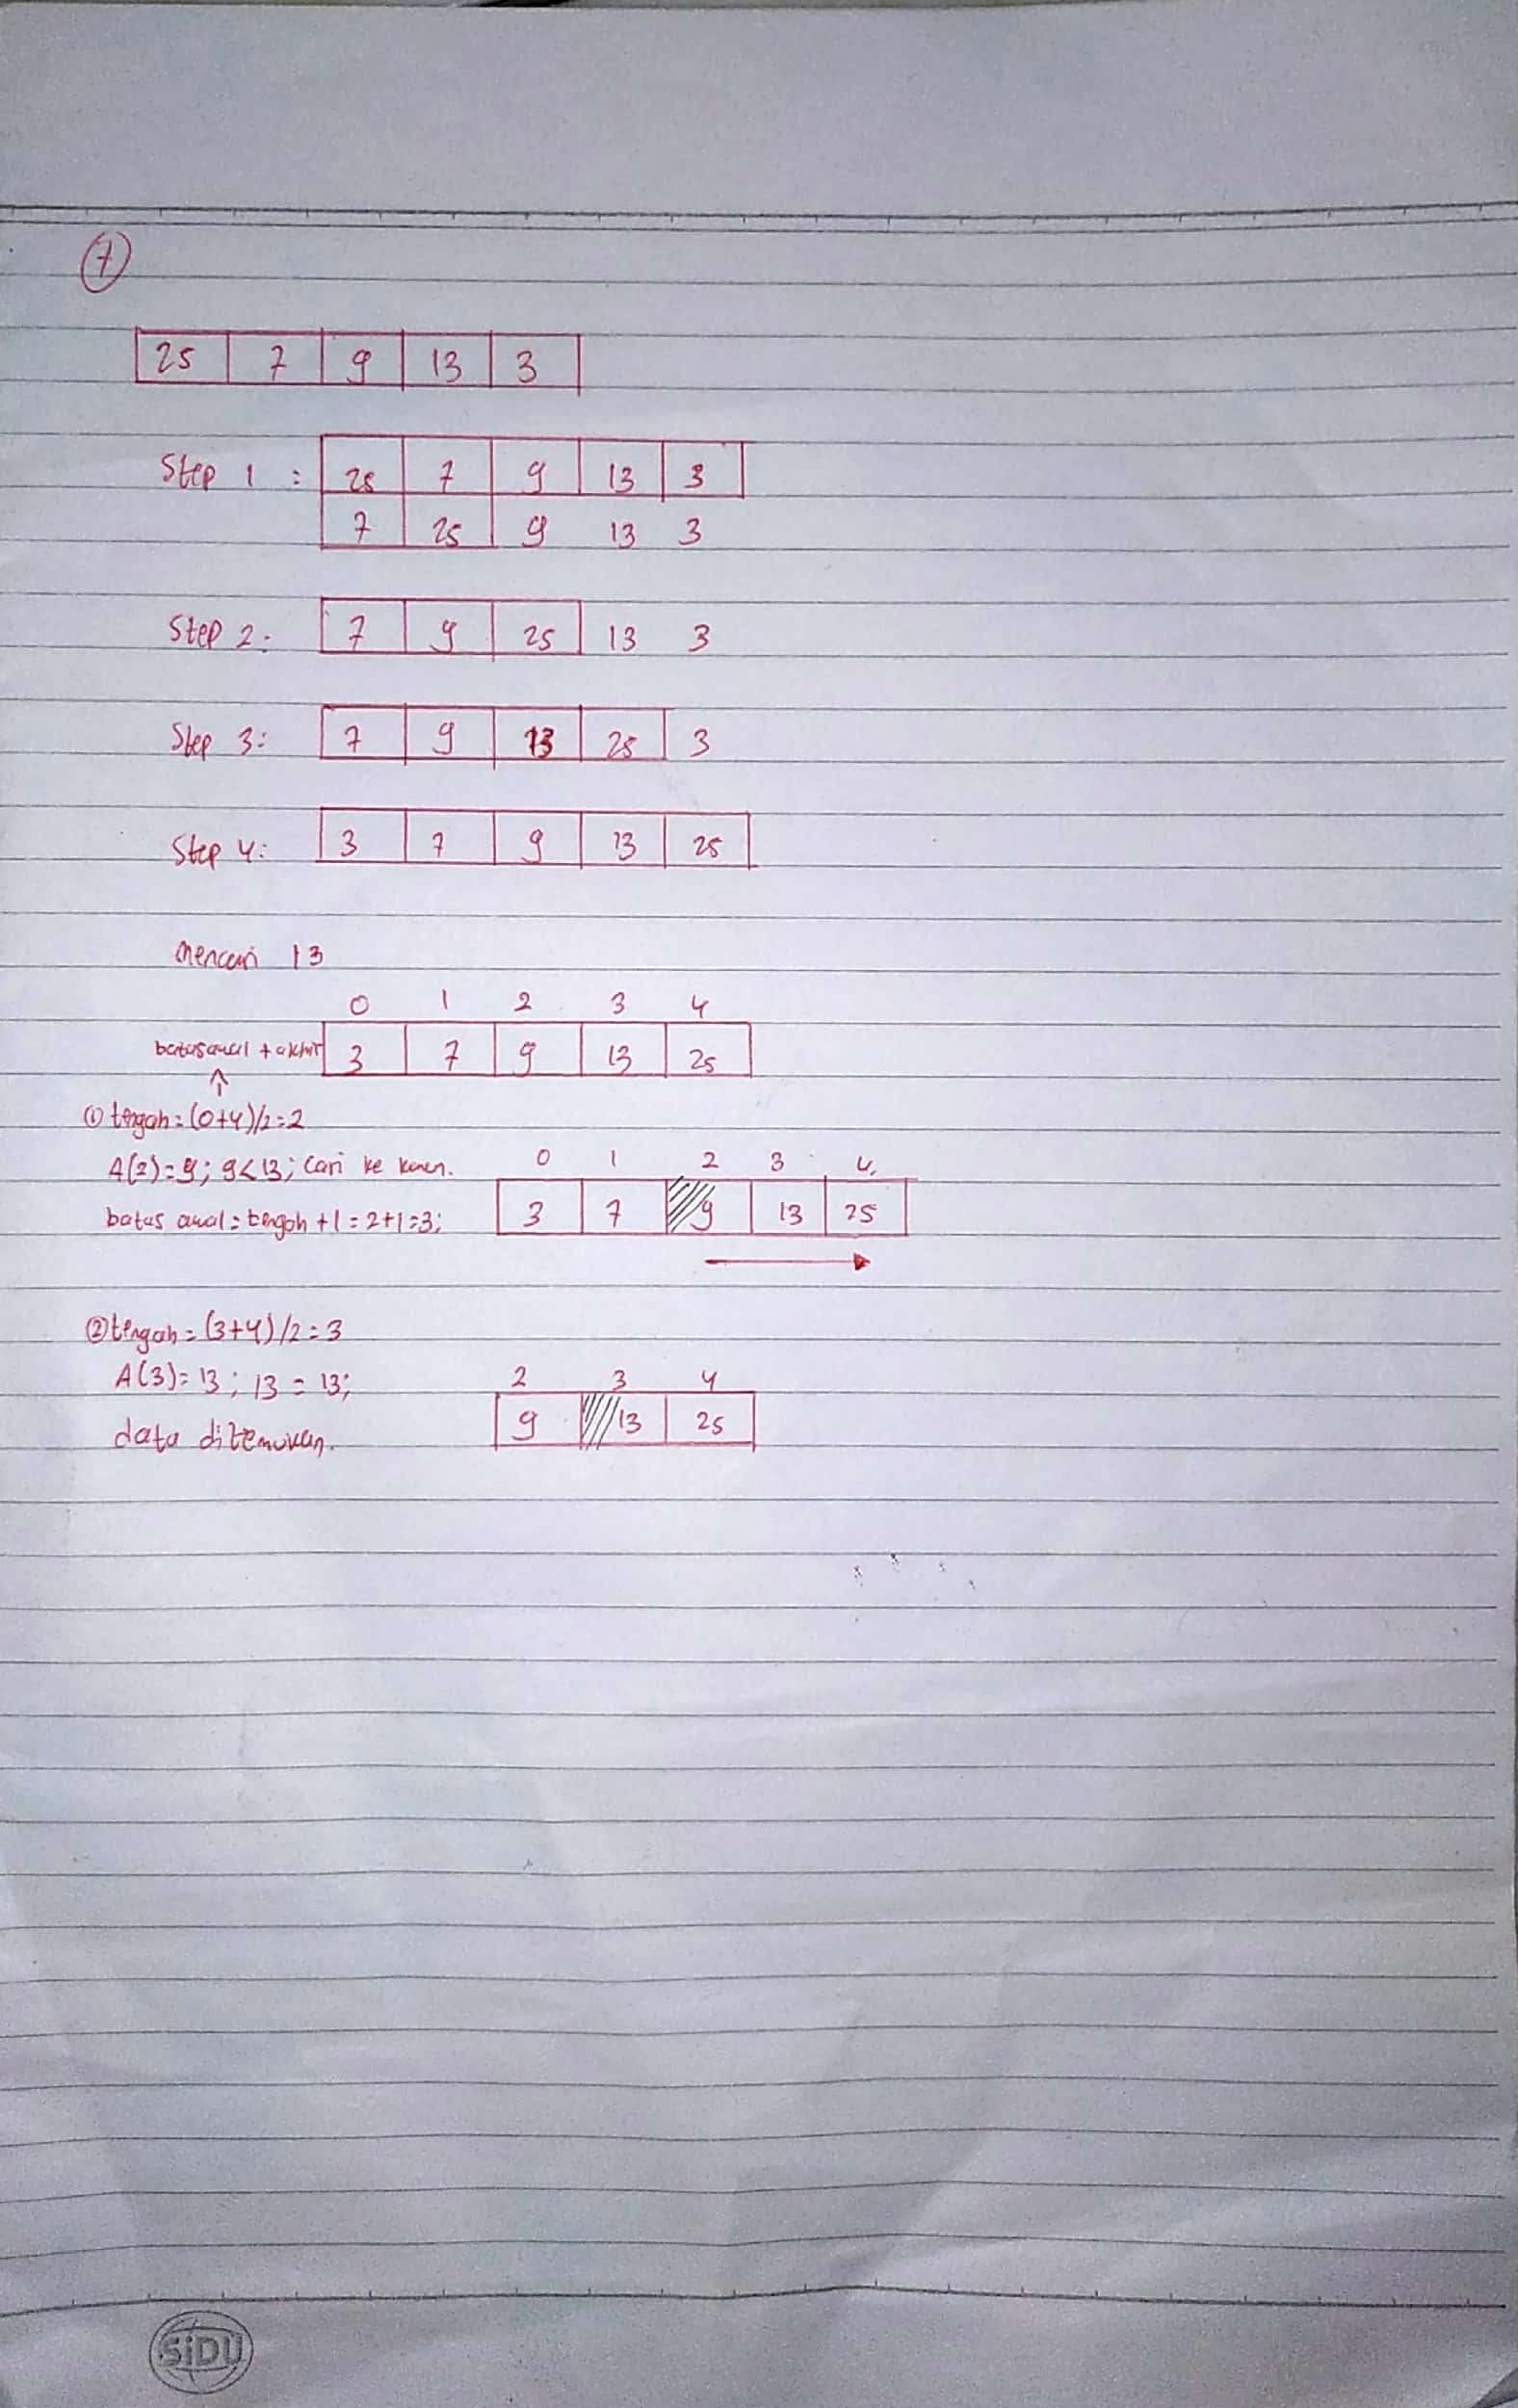 7
25 7 9 13 3
Step 1 : 25 7 9 13 3
7 25 9 13 3
Step 2: 7 9 25 13 3
Step 3: 7 9 13 25 3
Step 4: 3 7 9 13 25
mencari 13
0 1 2 3 4
batas awal + akhir 3 7 9 13 25
↑
① tengah = (0+4)/2 = 2
A(2) = 9; 9 < 13; Cari ke kanan.
0 1 2 3 4
batas awal = tengah + 1 = 2+1 = 3;
3 7 9 13 25
② tengah = (3+4)/2 = 3
A(3) = 13; 13 = 13;
2 3 4
data ditemukan.
9 13 25
SiDU